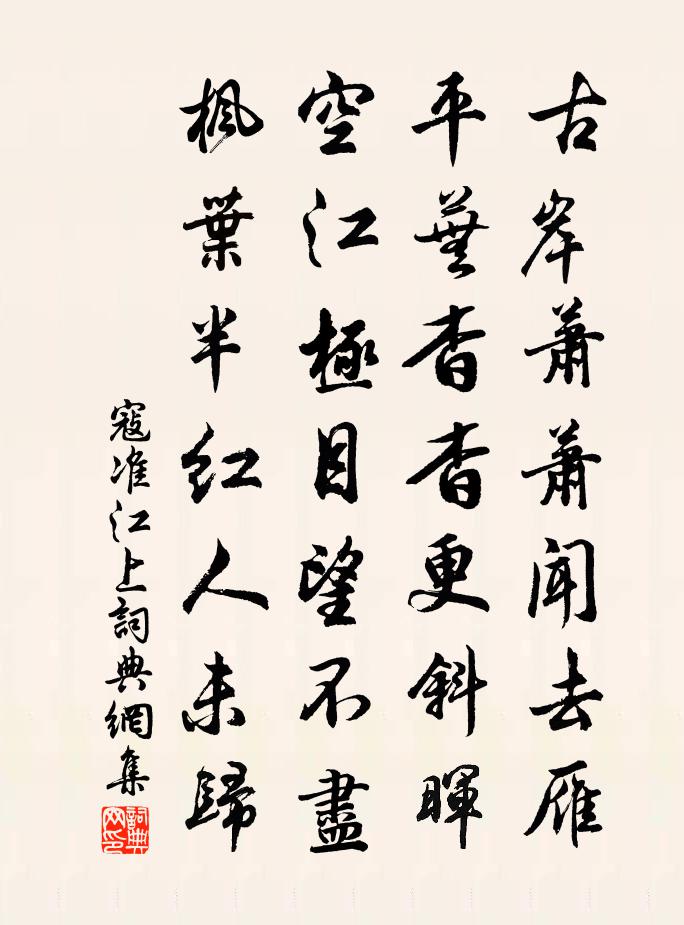 古岸蕭蕭聞去雁
平蕪杳杳更斜暉
空江極目望不盡
楓葉半紅人未歸
寇准江上詞典網集
詞典網印